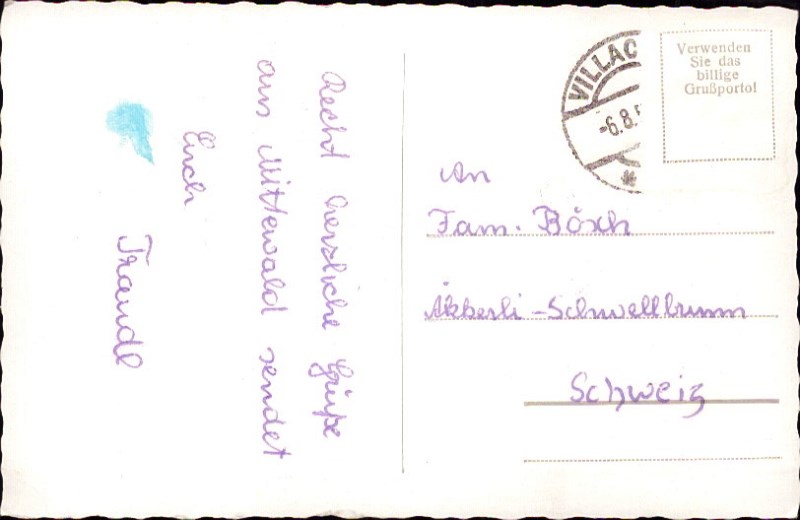 Recht herzliche Grüße
aus Mittewald sendet
Euch
Traudl
VILLAC
-6.8.5
Verwenden
Sie das
billige
Grußporto!
An
Fam. Bösch
Äckerli-Schwellbrunn
Schweiz